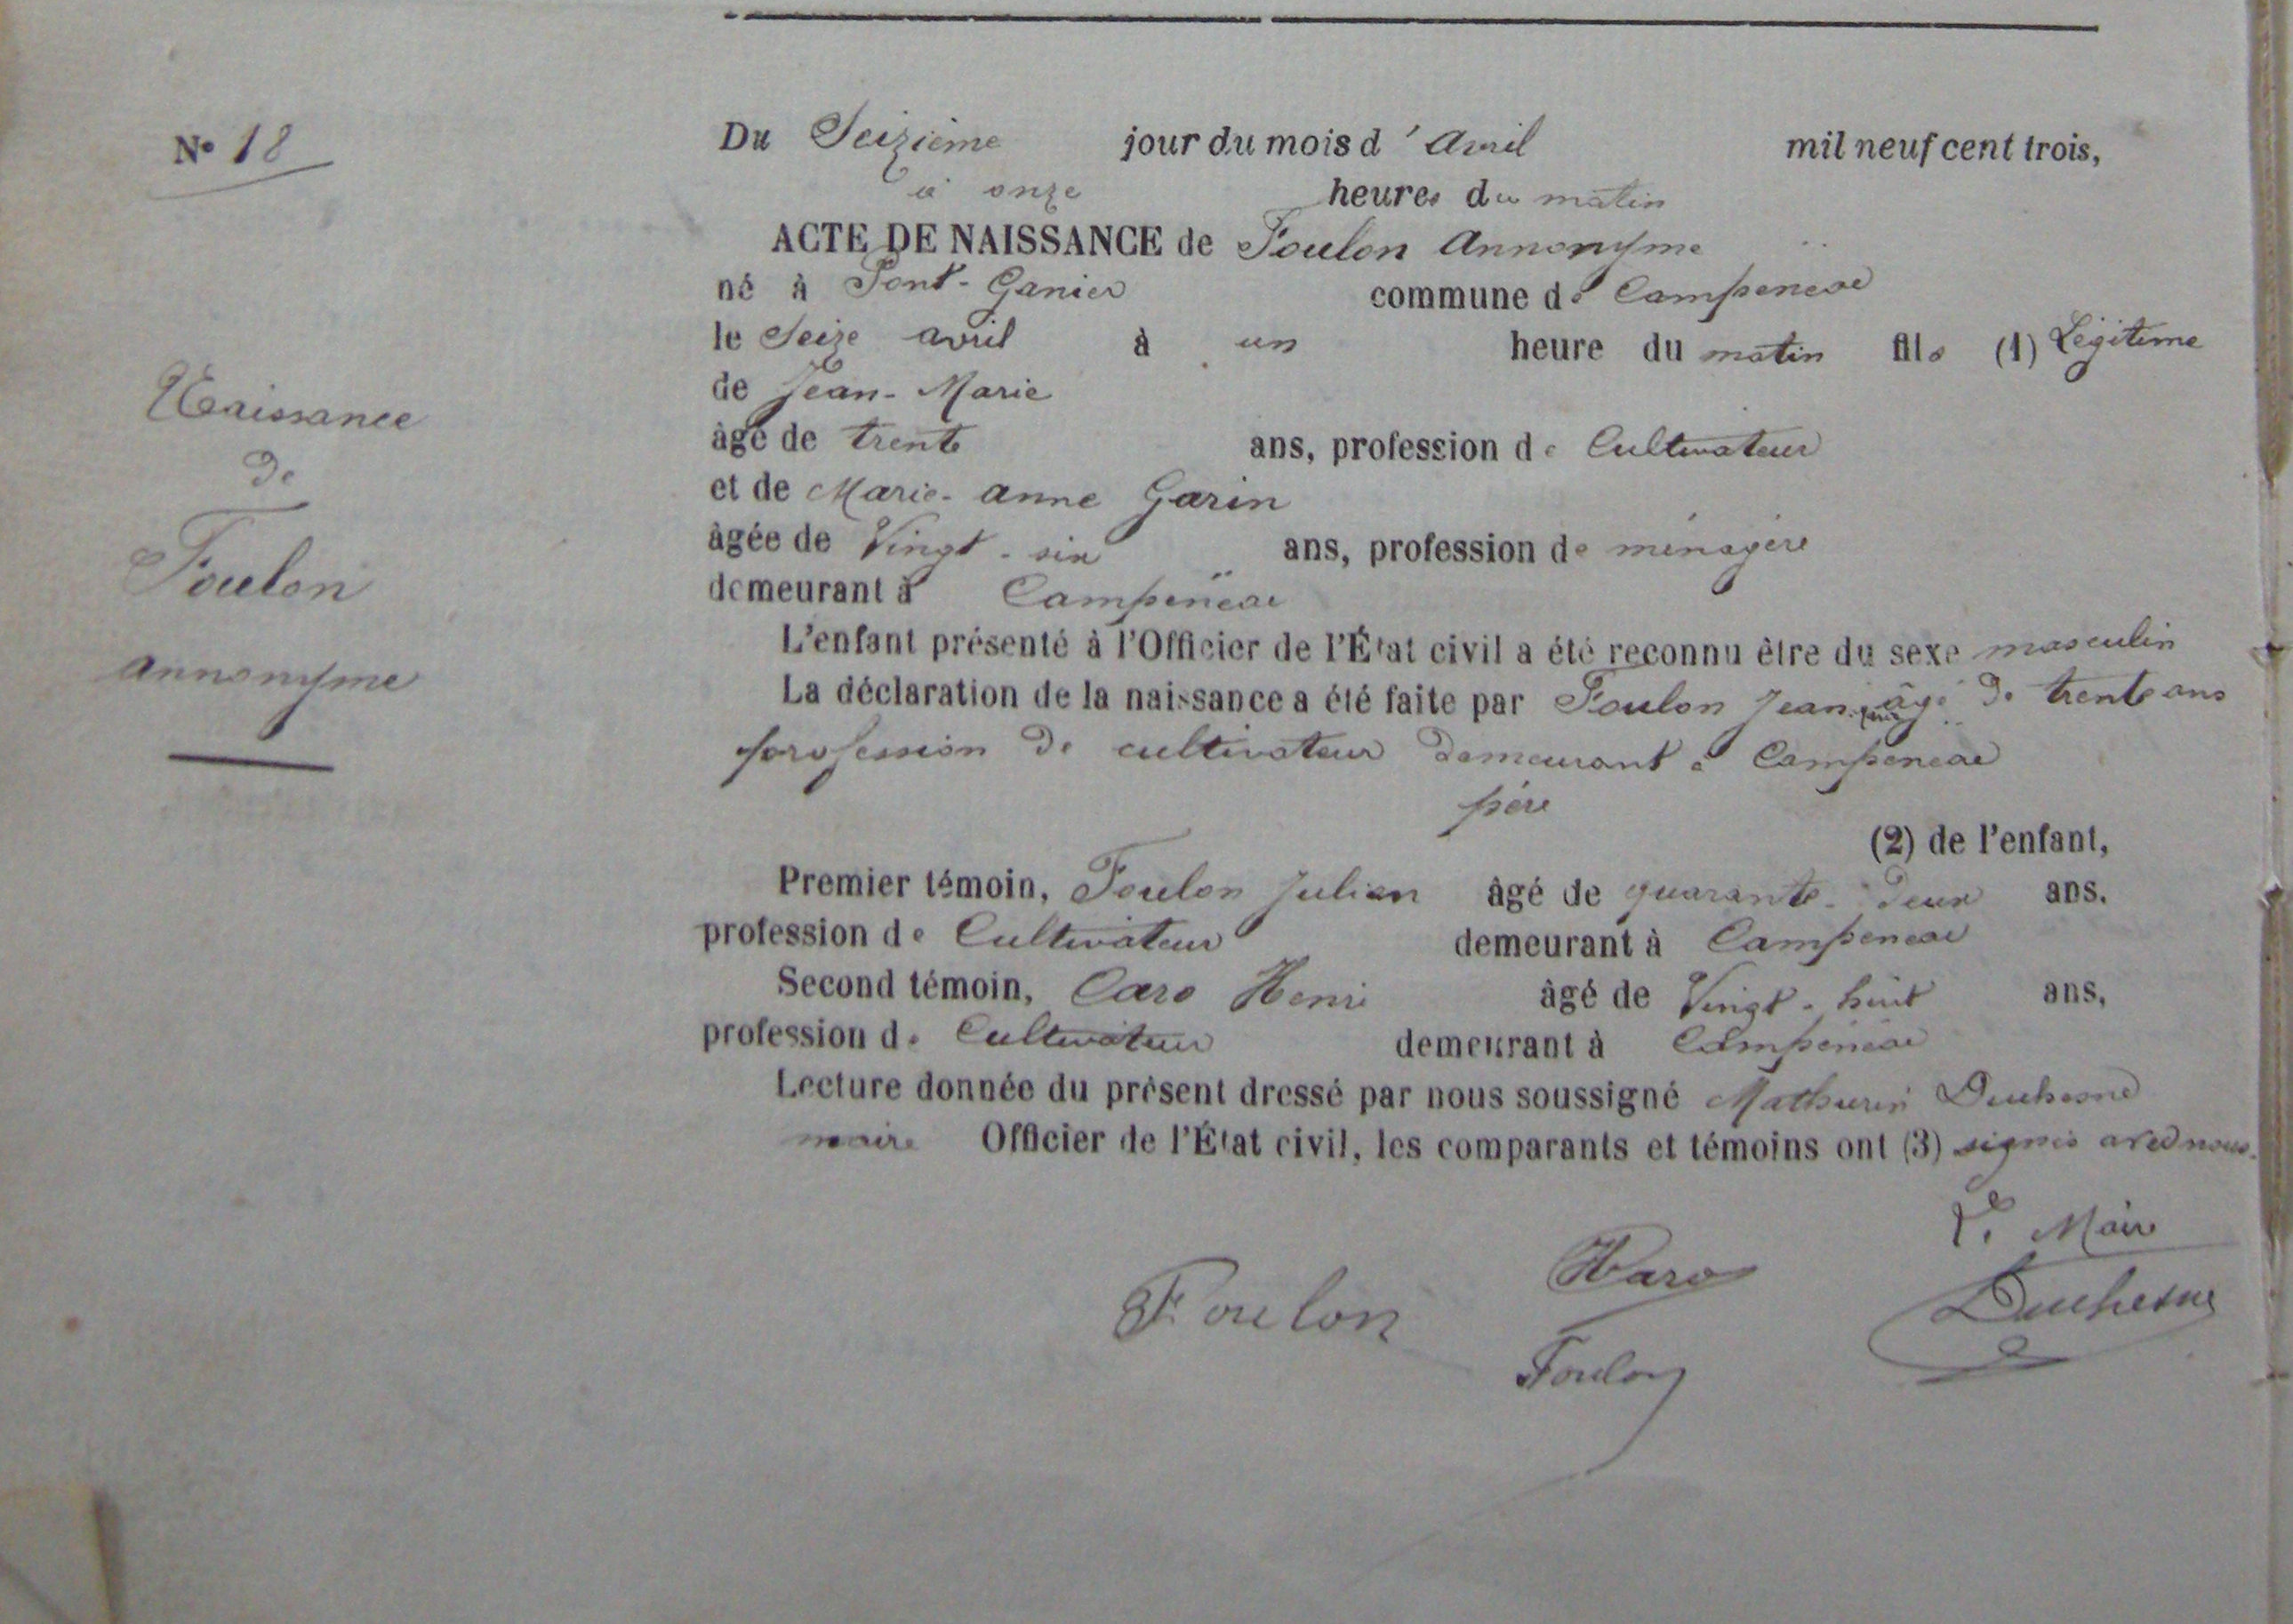 N° 18
Naissance
de
Foulon
annonyme
Du Seizième jour du mois d'Avril mil neuf cent trois,
à onze heures du matin
ACTE DE NAISSANCE de Foulon Annonyme
né à Pont-Ganier commune de Campénéac
le Seize avril à un heure du matin fils (1) Légitime
de Jean-Marie
âgé de trente ans, profession de Cultivateur
et de Marie-anne Garin
âgée de Vingt-six ans, profession de ménagère
demeurant à Campénéac
L'enfant présenté à l'Officier de l'État civil a été reconnu être du sexe masculin
La déclaration de la naissance a été faite par Foulon Jean-Marie âgé de trente ans
profession de cultivateur demeurant à Campénéac
père
(2) de l'enfant,
Premier témoin, Foulon Julien âgé de quarante-deux ans.
profession de Cultivateur demeurant à Campénéac
Second témoin, Caro Henri âgé de Vingt-huit ans,
profession de Cultivateur demeurant à Campénéac
Lecture donnée du présent dressé par nous soussigné Mathurin Duchesne
maire Officier de l'État civil, les comparants et témoins ont (3) signés avec nous.
Le Maire
HCaro
Foulon Duchesne
Foulon